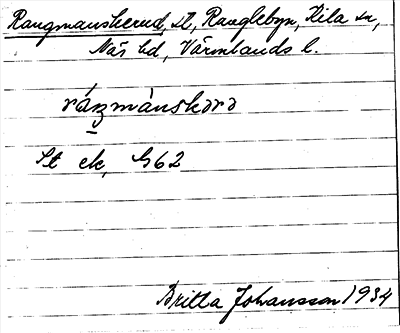 Rangmanskerud, lt, Ranglebyn, Kila sn,
Näs hd, Värmlands l.
ráŋmànskərə
St ek, G62
Britta Johansson 1934